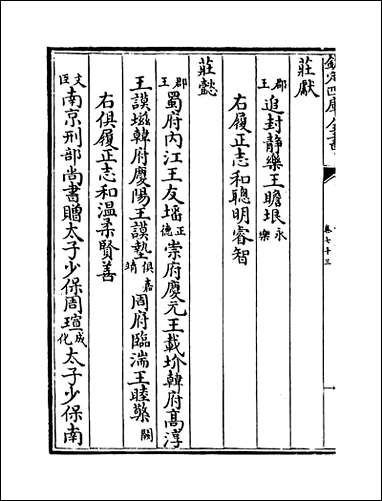 欽定四庫全書
卷七十三
莊獻
郡王 追封靜樂王瞻垠永樂
右履正志和聰明睿智
莊懿
郡王 蜀府内江王友墦正德 崇府慶元王載㘦韓府高淳
王謨㙺韓府慶陽王謨墊俱嘉靖 周府臨湍王睦㰂闕
右俱履正志和温柔賢善
文臣 南京刑部尚書贈太子少保周瑄成化太子少保南